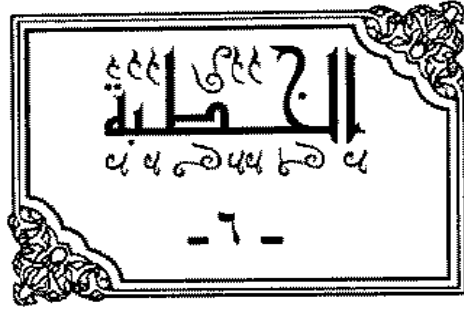 الخطبة
- ٦ -